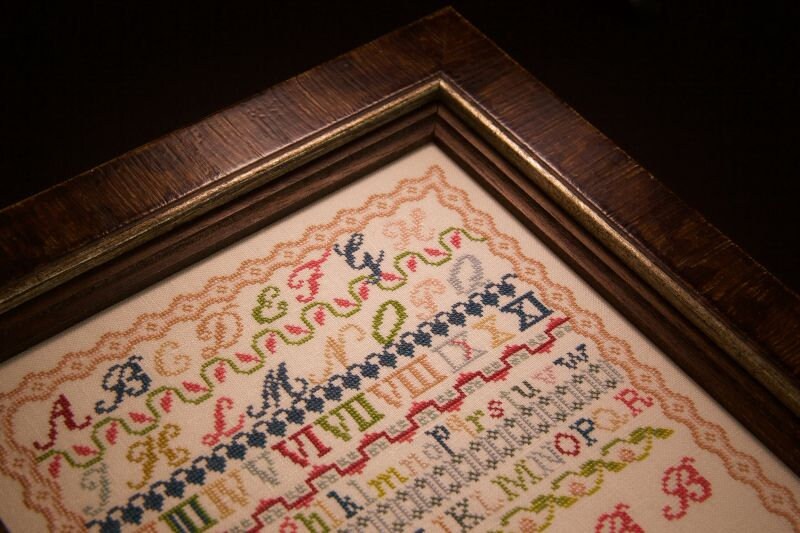 A B C D E F G H
J K L M N O P Q
III IV V VI VII VIII IX X XI
h k l m n o p q r s t u v w
K L M N O P Q R
A B